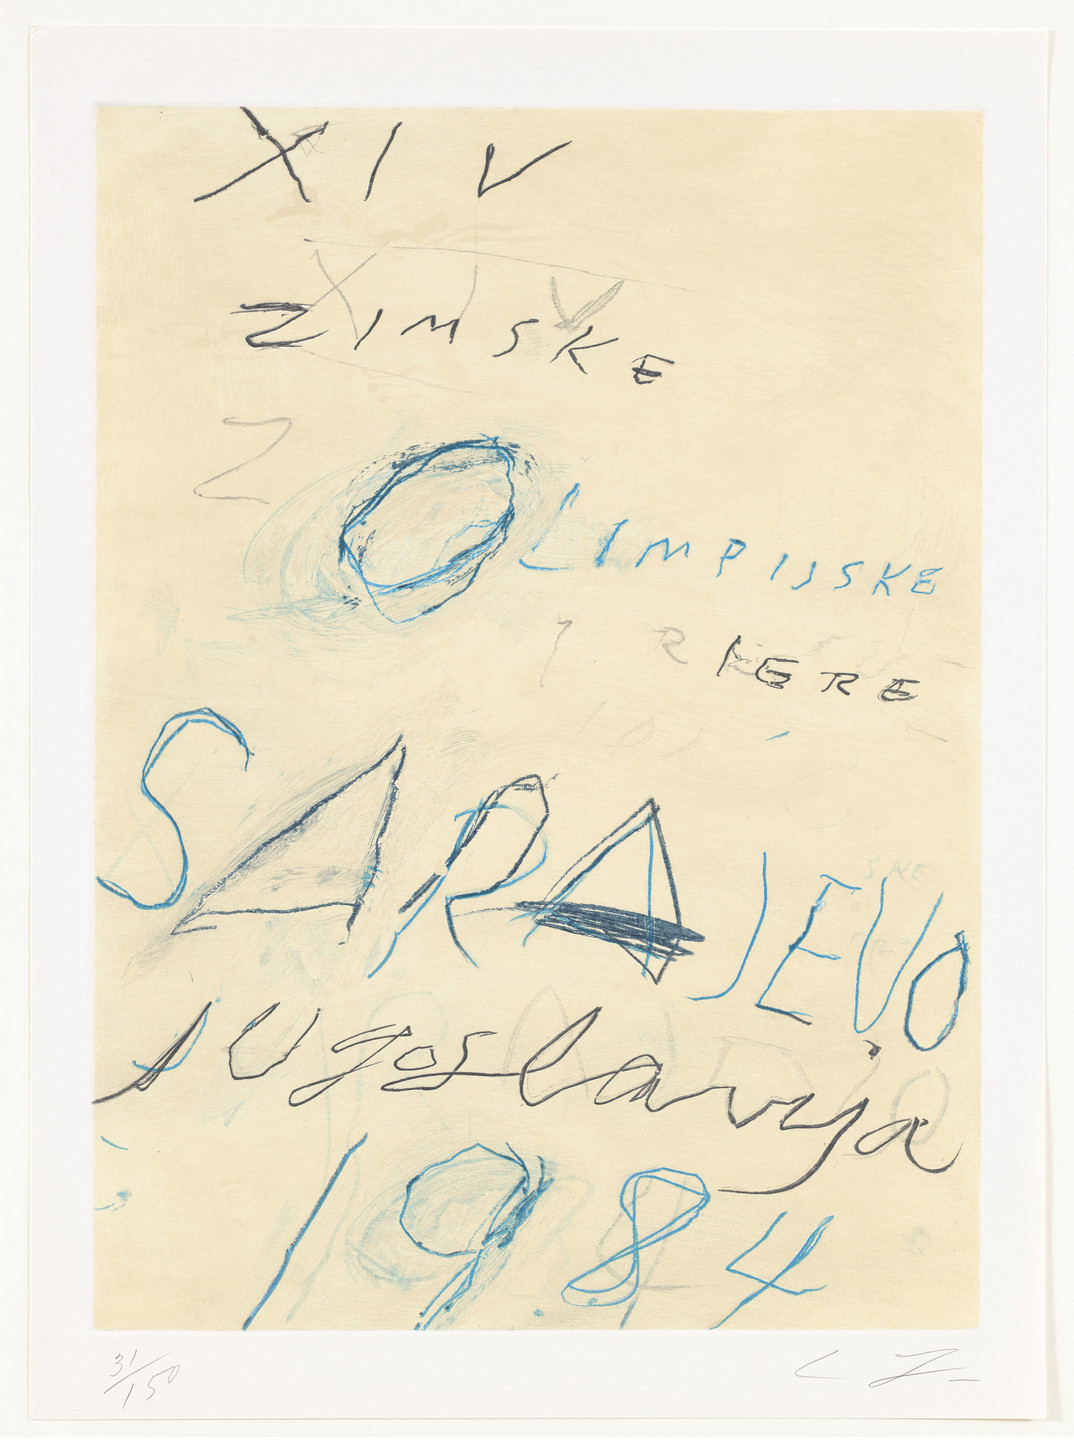 XIV
XIV
ZIMSKE
Z
OLIMPIJSKE
R IGRE
SARAJEVO
Jugoslavija
1984
31/150